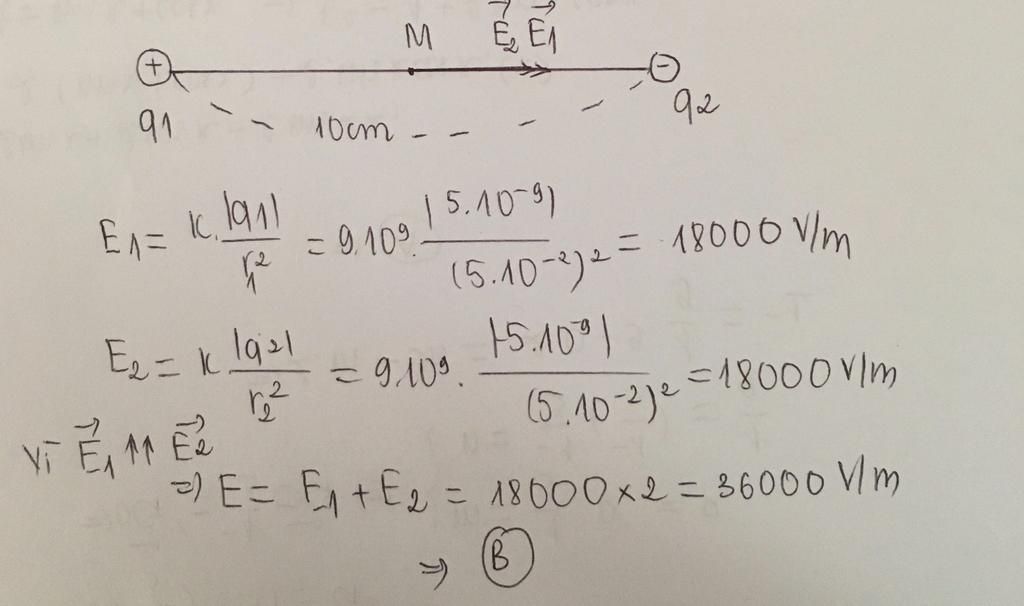 M E⃗₂ E⃗₁
+ -
q1 10cm q2
E₁ = k.|q1|/r₁² = 9.10⁹.|5.10⁻⁹|/(5.10⁻²)² = 18000 V/m
E₂ = k |q2|/r₂² = 9.10⁹.|-5.10⁻⁹|/(5.10⁻²)² = 18000 V/m
Vì E⃗₁ ↑↑ E⃗₂
=> E = E₁ + E₂ = 18000 x 2 = 36000 V/m
=> B